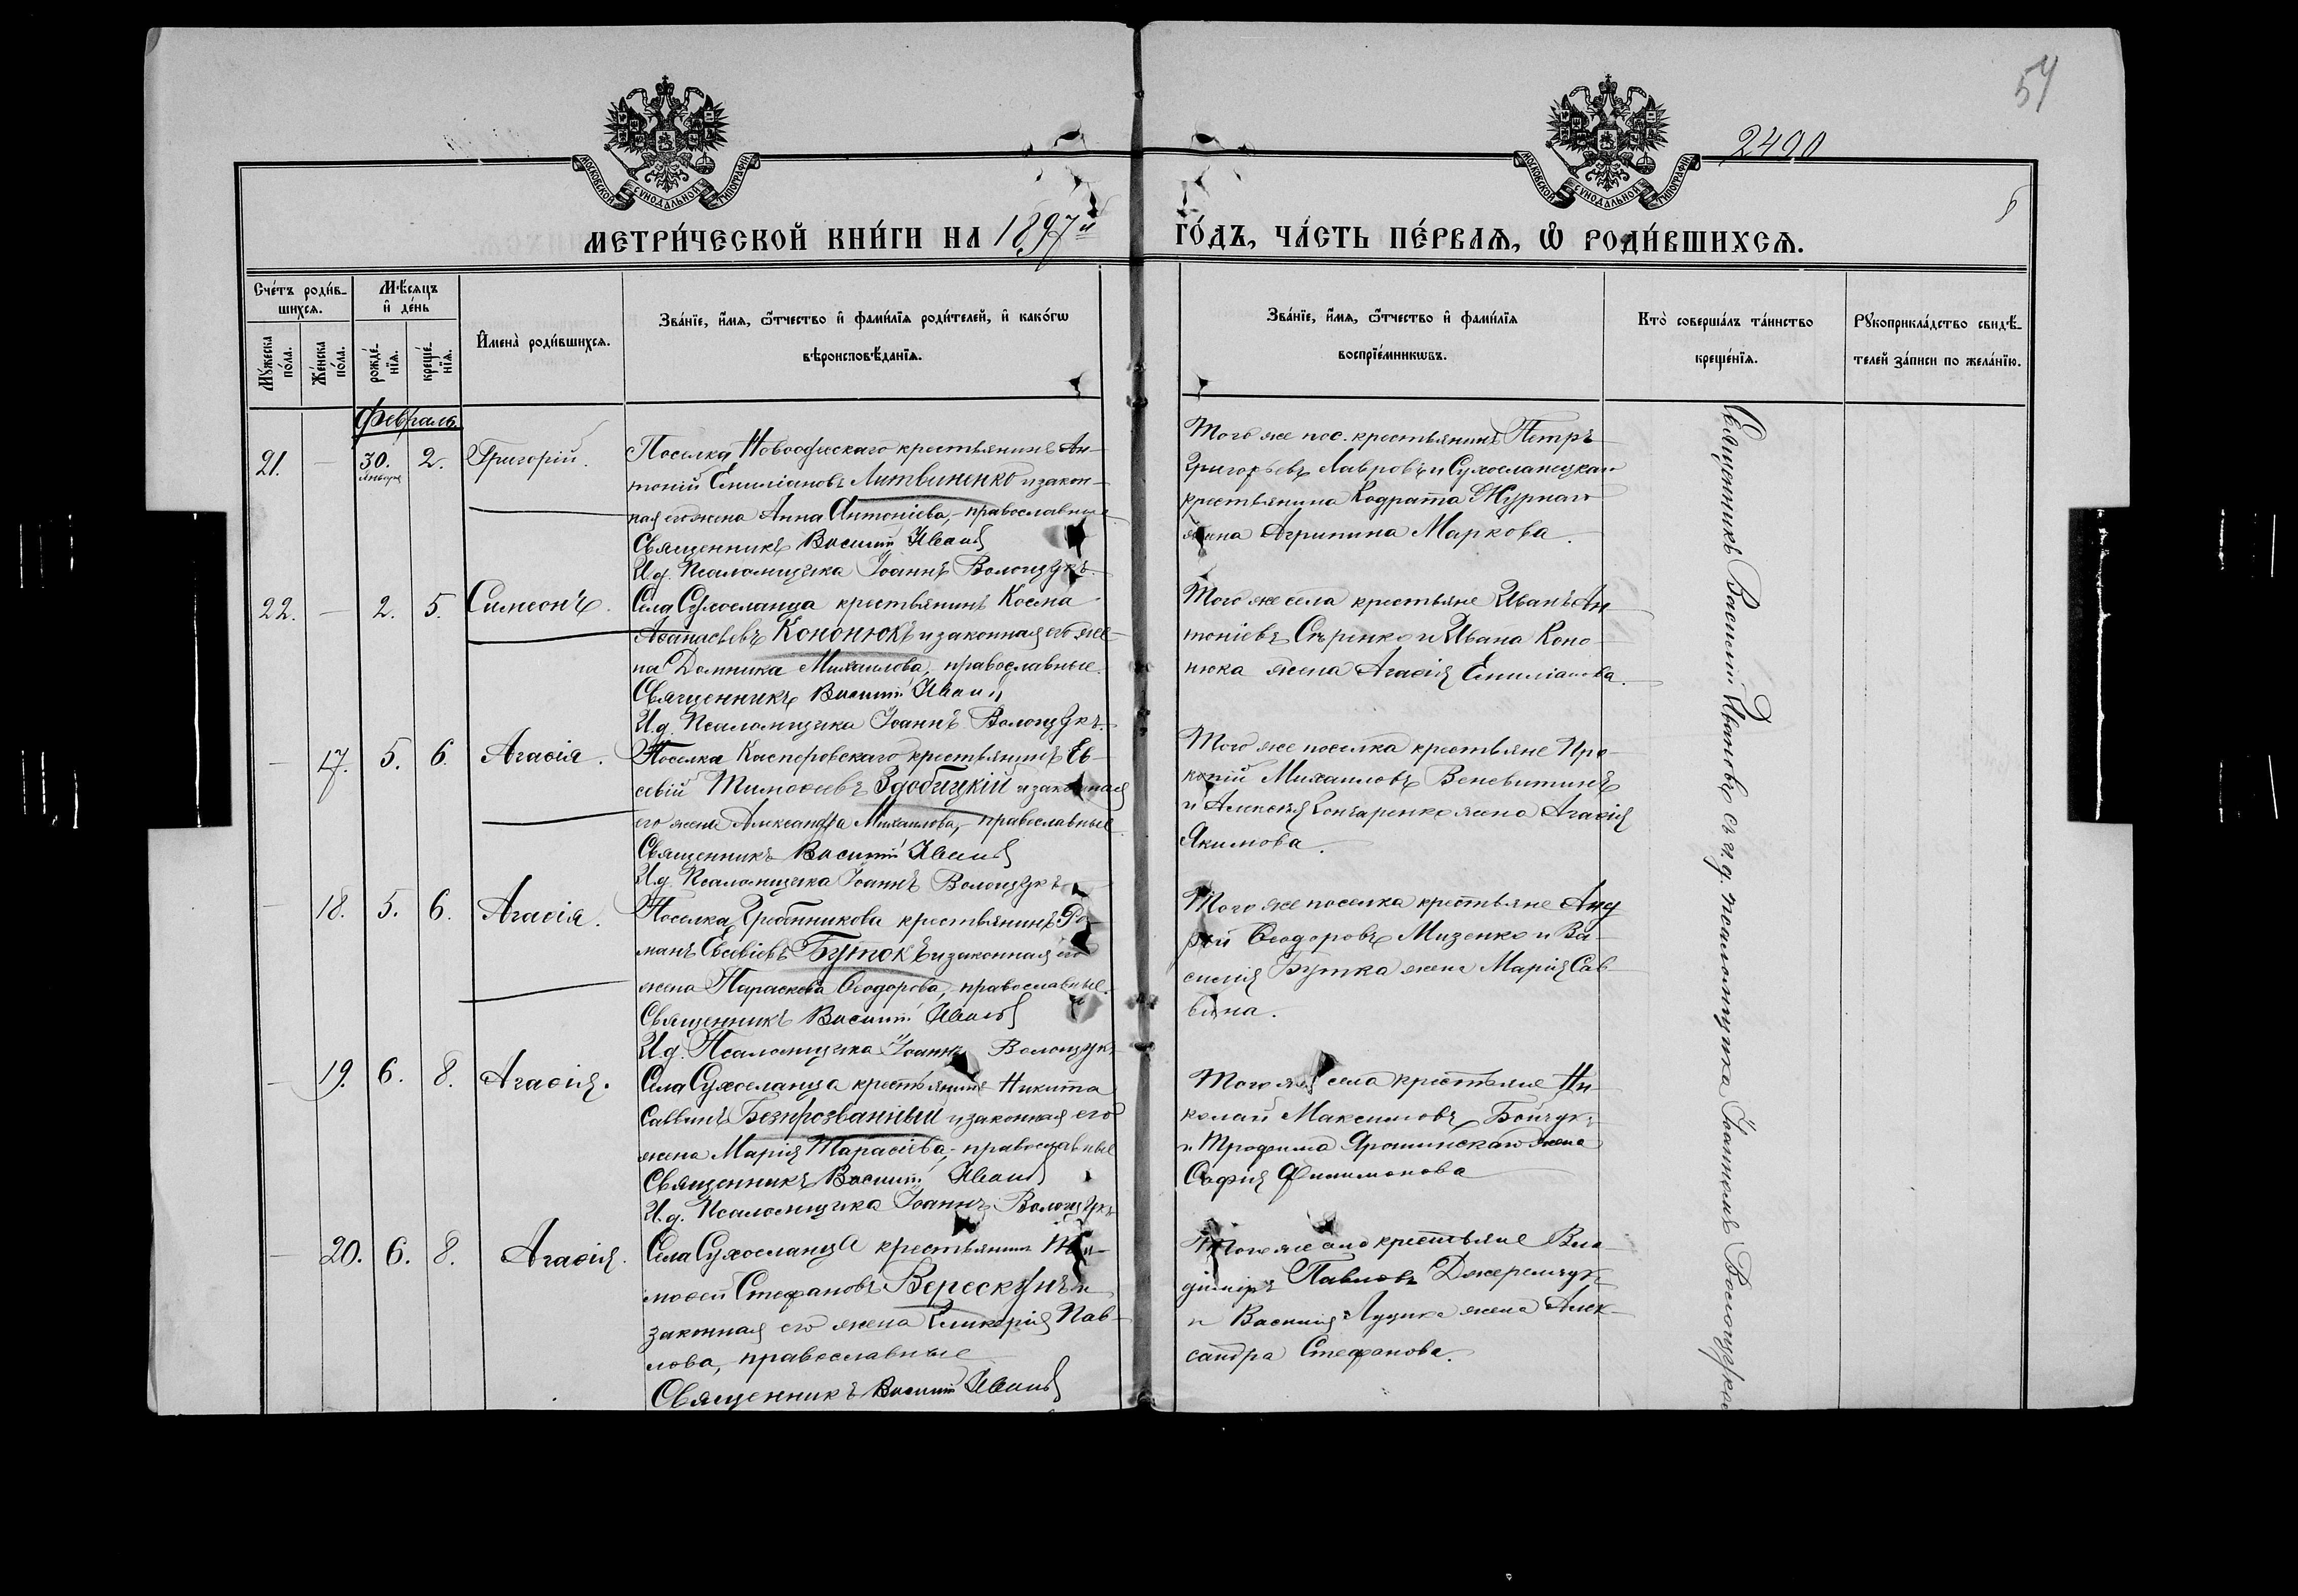 54
2490
МОСКОВСКОЙ СУНОДАЛЬНОЙ ТИПОГРАФІИ
МОСКОВСКОЙ СУНОДАЛЬНОЙ ТИПОГРАФІИ
МЕТРИ́ЧЕСКОЙ КНИ́ГИ НА 1897й ГО́ДЪ, ЧА́СТЬ ПЕ́РВАЯ, Ѽ РОДИ́ВШИХСЯ.
Сче́тъ роди́в-
шихся.
Мѣ́сяцъ
и҆ де́нь
Мꙋ́жеска
по́ла.
Же́нска
по́ла.
рожде́-
нїя.
креще́-
нїя.
И҆мена̀ роди́вшихся.
Зва́нїе, и҆́мя, ѻ҆́тчество и҆ фами́лїя роди́телей, и҆ како́гѡ
вѣроисповѣ́данїя.
Зва́нїе, и҆́мя, ѻ҆́тчество и҆ фами́лїя
воспрїе́мникѡвъ.
Кто̀ соверша́лъ та́инство
креще́нїя.
Рꙋкоприкла́дство свидѣ́-
телей за́писи по жела́нїю.
Февраль
21. — 30. Января 2. Григорій.
Поселка Новоодесскаго крестьянинъ Ан-
тоній Емиліановъ Литвиненко и закон-
ная его жена Анна Антоніева, православные
Священникъ Василій Иванов
И.д. Псаломщика Іоаннъ Волощукъ
Того же пос. крестьянинъ Петръ
Григорьевъ Лавровъ и Сухоеланецкаго
крестьянина Кодрата Журнаго
жена Агрипина Маркова.
22. — 2. 5. Симеонъ.
Села Сухоеланца крестьянинъ Косма
Аѳанасьевъ Кононюкъ и законная его же-
на Домника Михаилова, православные.
Священникъ Василій Иванов
И.д. Псаломщика Іоаннъ Волощукъ
Того же села крестьяне Иванъ Ан
тоніевъ Сѣренко и Ивана Коно-
нюка жена Агаѳія Емиліанова.
— 17. 5. 6. Агаѳія.
Поселка Касперовскаго крестьянинъ Ев-
севій Тимоѳеевъ Здобицкій и законная
его жена Александра Михаилова, православные.
Священникъ Василій Иванов
И.д. Псаломщика Іоаннъ Волощукъ
Того же поселка крестьяне Про-
копій Михаиловъ Веневитинъ
и Алексѣя Гончаренко жена Агаѳія
Якимова.
— 18. 5. 6. Агаѳія.
Поселка Гребенникова крестьянинъ Ро-
манъ Евсевіевъ Бутокъ и законная его
жена Параскева Ѳеодорова, православные.
Священникъ Василій Иванов
И.д. Псаломщика Іоаннъ Волощукъ
Того же поселка крестьяне Анд
рей Ѳеодоровъ Мизенко и Ва-
силія Бутка жена Марія Сав-
вина.
— 19. 6. 8. Агаѳія.
Села Сухоеланца крестьянинъ Никита
Саввинъ Безпрозванный и законная его
жена Марія Тарасіева, православные
Священникъ Василій Иванов
И.д. Псаломщика Іоаннъ Волощукъ
Того же села крестьяне Ни-
колай Максимовъ Бойчукъ
и Трофима Ярошинскаго жена
Софія Филимонова
— 20. 6. 8. Агаѳія.
Села Сухоеланца крестьянинъ Ти-
моѳей Стефановъ Верескунъ и
законная его жена Гликерія Пав-
лова, православные
Священникъ Василій Иванов
Того же села крестьяне Вла-
диміръ Павловъ Джеремчукъ
и Василія Луцика жена Алек-
сандра Стефанова.
Священникъ Василій Ивановъ съ и.д. псаломщика Іоанномъ Волощукомъ